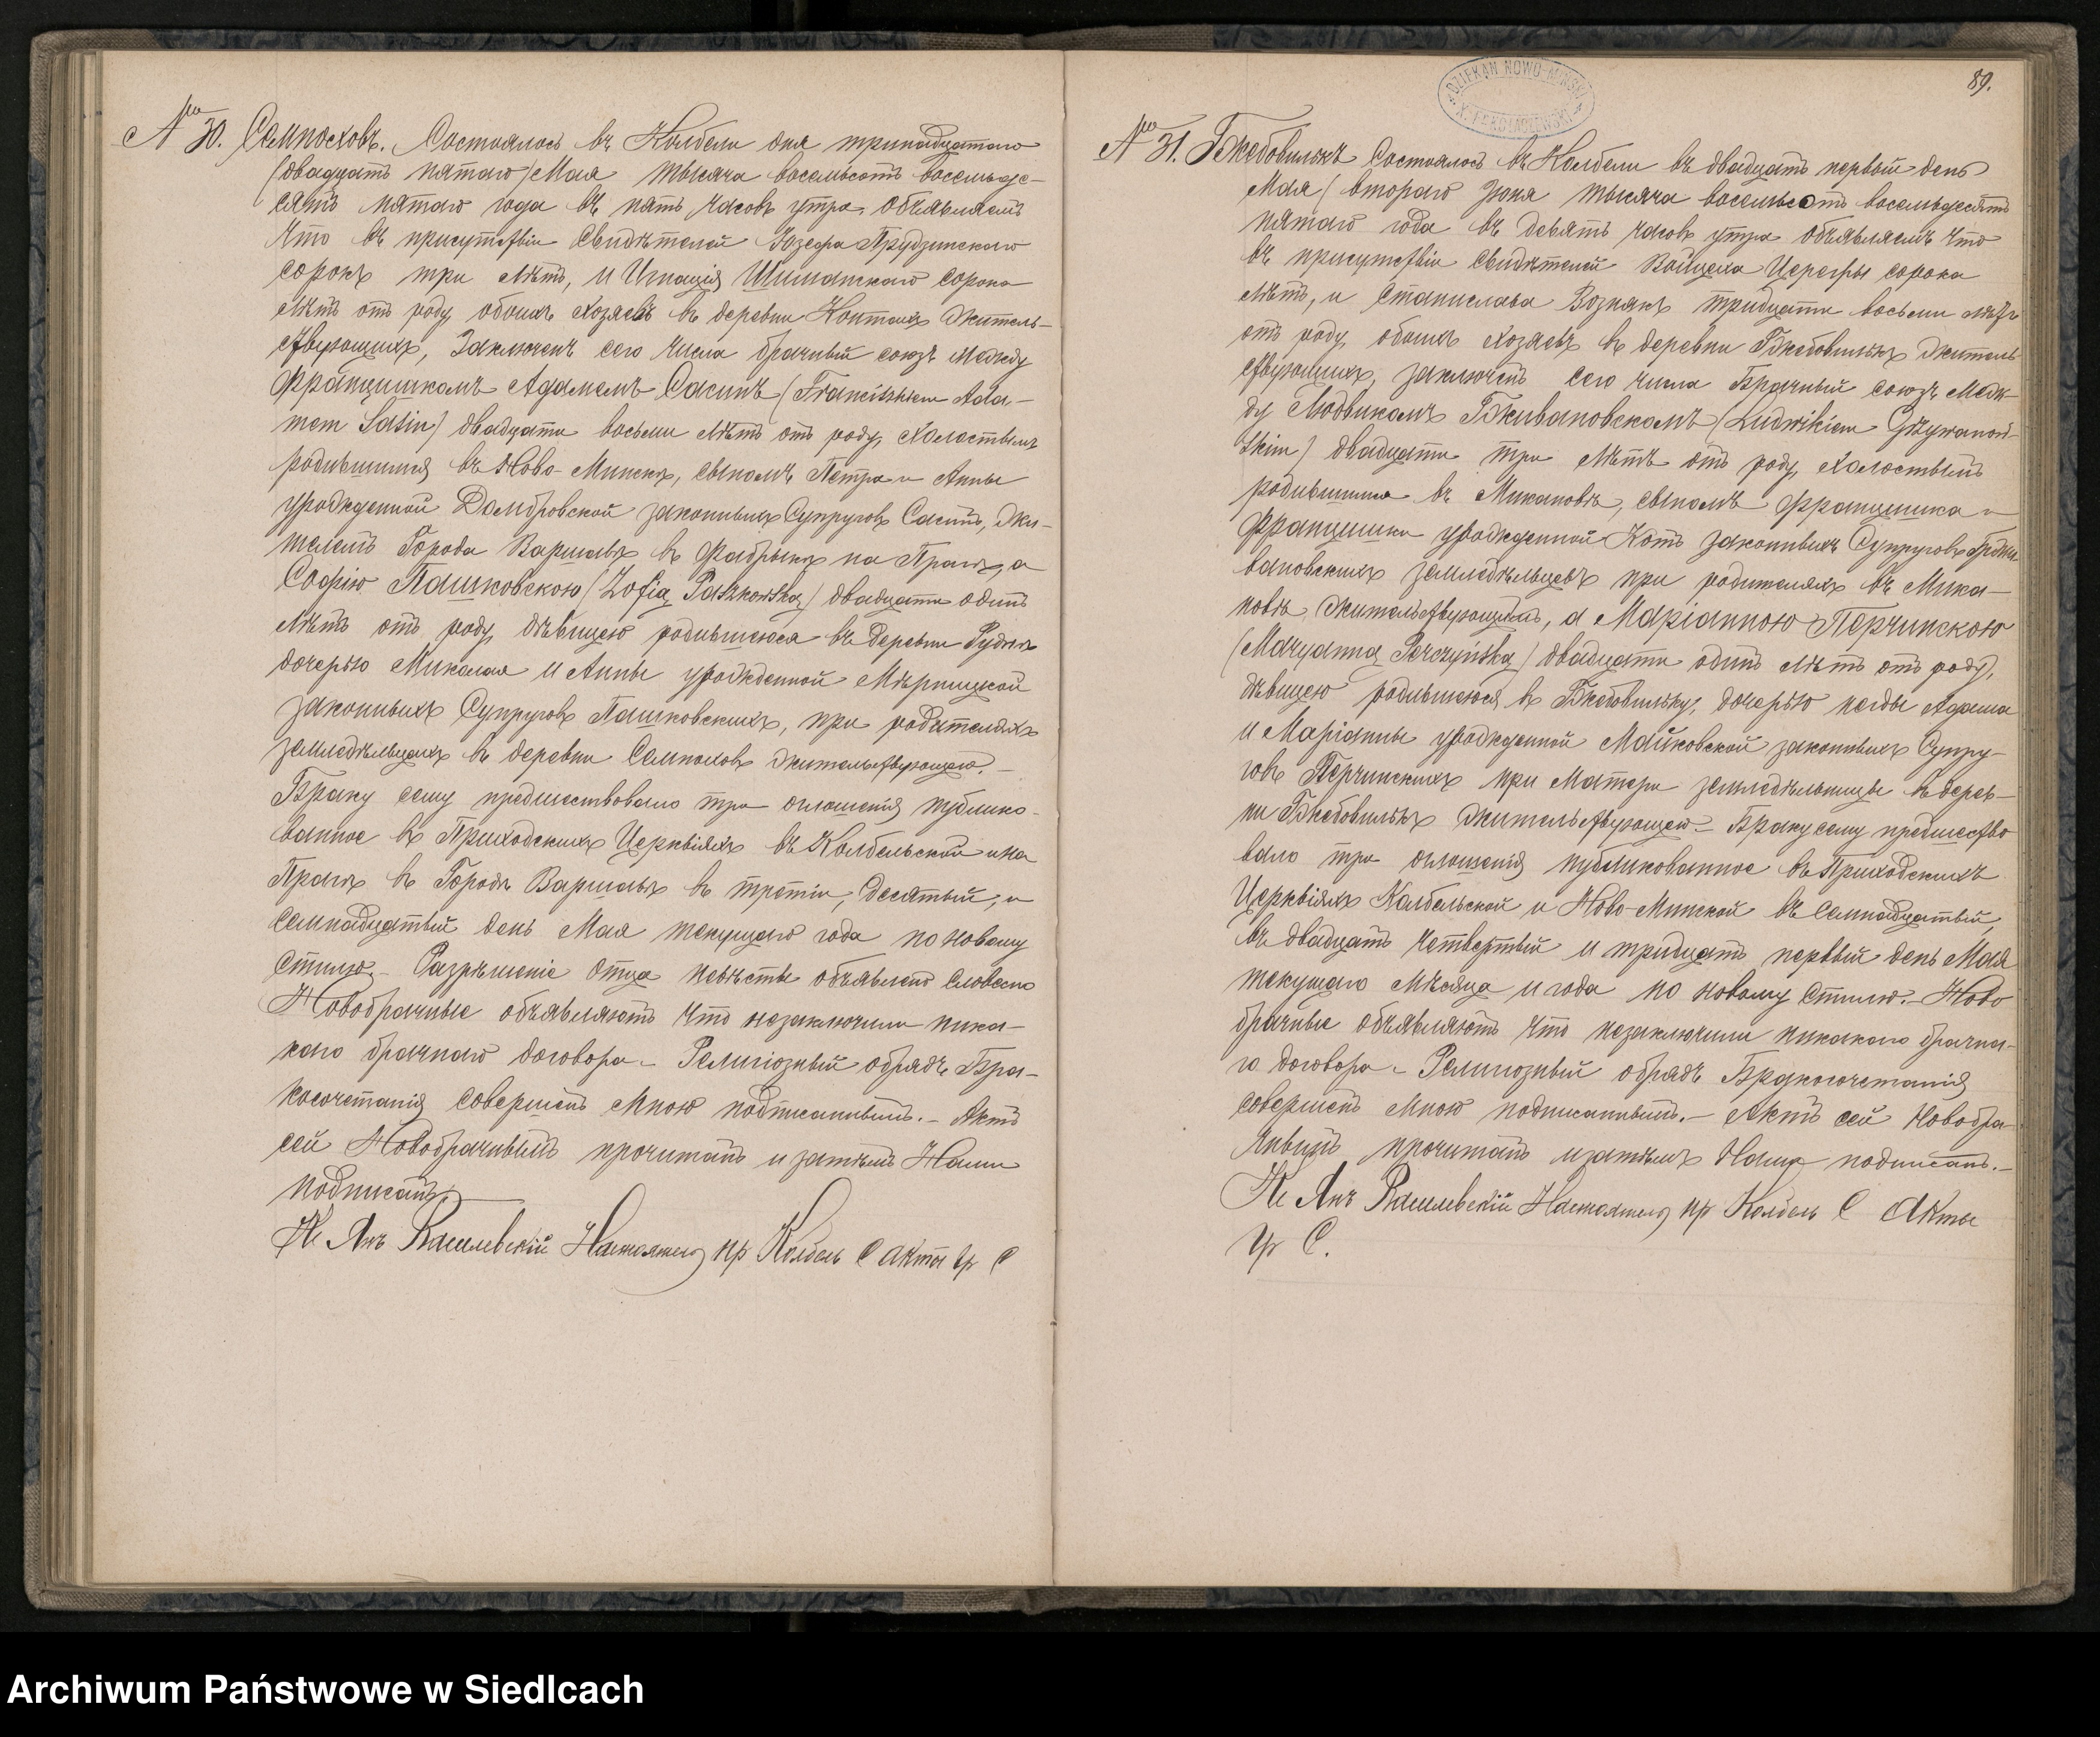 № 30. Семпоховъ. Состоялось въ Колбели дня тринадцатаго
(двадцать пятаго) Мая тысяча восемьсотъ восемьде-
сятъ пятаго года въ пять часовъ утра. Объявляемъ
что въ присутствіи свидѣтелей Іозефа Прудзинскаго
сорокъ три лѣтъ, и Игнація Шиманскаго сорока
лѣтъ отъ роду, обоихъ хозяевъ въ деревни Контахъ житель-
ствующихъ, Заключенъ сего числа брачный союзъ между
Францишкомъ Адамомъ Сасинъ (Franciszkiem Ada-
mem Sasin) двадцати восьми лѣтъ отъ роду, холостымъ
родившимся въ Ново-Минскѣ, сыномъ Петра и Анны
урожденной Домбровской законныхъ Супруговъ Сасинъ, жи-
телемъ Города Варшавы въ фабрыкѣ на Прагѣ, а
Софіею Пашковскою (Zofią Paszkowską) двадцати одинъ
лѣтъ отъ роду, дѣвицею родившеюся въ деревни Рудкѣ
дочерью Миколая и Анны урожденной Мѣрницкой
законныхъ Супруговъ Пашковскихъ, при родителяхъ
земледѣльцахъ въ деревни Семпоховѣ жительствующею. —
Браку сему предшествовало три оглошенія публико-
ванное въ Приходскихъ Церквіяхъ въ Колбельской и на
Прагѣ въ Городѣ Варшавѣ въ третій, десятый, и
семнадцатый день Мая текущаго года по новому
стилю. — Разрѣшеніе отца невѣсты объявлено словесно
Новобрачные объявляютъ что незаключили ника-
каго брачнаго договора — Религіозный обрядъ Бра-
косочетанія совершенъ мною подписаннымъ. — Актъ
сей Новобрачнымъ прочитанъ и затѣмъ Нами
подписанъ. —
Кс Янъ Василевскій Настоятель пр Колбель С акты Гр С
89.
DZIEKAN NOWO-MIŃSKI
№ 31. Гжебовилькъ Состоялось въ Колбели въ двадцать первый день
Мая (втораго Іюня тысяча восемьсотъ восемьдесятъ
пятаго года въ девять часовъ утра Объявляемъ что
въ присутствіи свидѣтелей Войцеха Церегры сорока
лѣтъ, и Станислава Вознякъ тридцати восьми лѣтъ
отъ роду, обоихъ хозяевъ въ деревни Гжебовилькъ житель-
ствующихъ, заключенъ сего числа Брачный союзъ Меж-
ду Людвикомъ Гживановскомъ (Ludwikiem Grzywanow-
skim) двадцати три лѣтъ отъ роду, холостымъ
родившимся въ Микановѣ, сыномъ Францишка и
Францишки урожденной Котъ законныхъ Супруговъ Гржи-
вановскихъ земледѣльцевъ при родителяхъ въ Мика-
новѣ жительствующимъ, а Маріанною Перчинскою
(Maryanną Perczyńską) двадцати одинъ лѣтъ отъ роду,
дѣвицею родившеюся въ Гжебовильку, дочерью негды Адама
и Маріанны урожденной Майковской законныхъ Супру-
говъ Перчинскихъ при матери земледѣльницы въ дерев-
ни Гжебовилькъ жительствующею — Браку сему предшество
вало три оглошенія публикованное въ Приходскихъ
Церквіяхъ Колбельской и Ново-Минской въ семнадцатый,
въ двадцать четвертый и тридцать первый день Мая
текущаго мѣсяца и года по новому стилю. — Ново
брачные объявляютъ что незаключили никакого брачна-
го договора — Религіозный обрядъ Бракосочетанія
совершенъ мною подписаннымъ. — Актъ сей Новобра-
чнымъ прочитанъ изатѣмъ Нами подписанъ. —
Кс Янъ Василевскій Настоятель пр Колбель С Акты
Гр С.
Archiwum Państwowe w Siedlcach